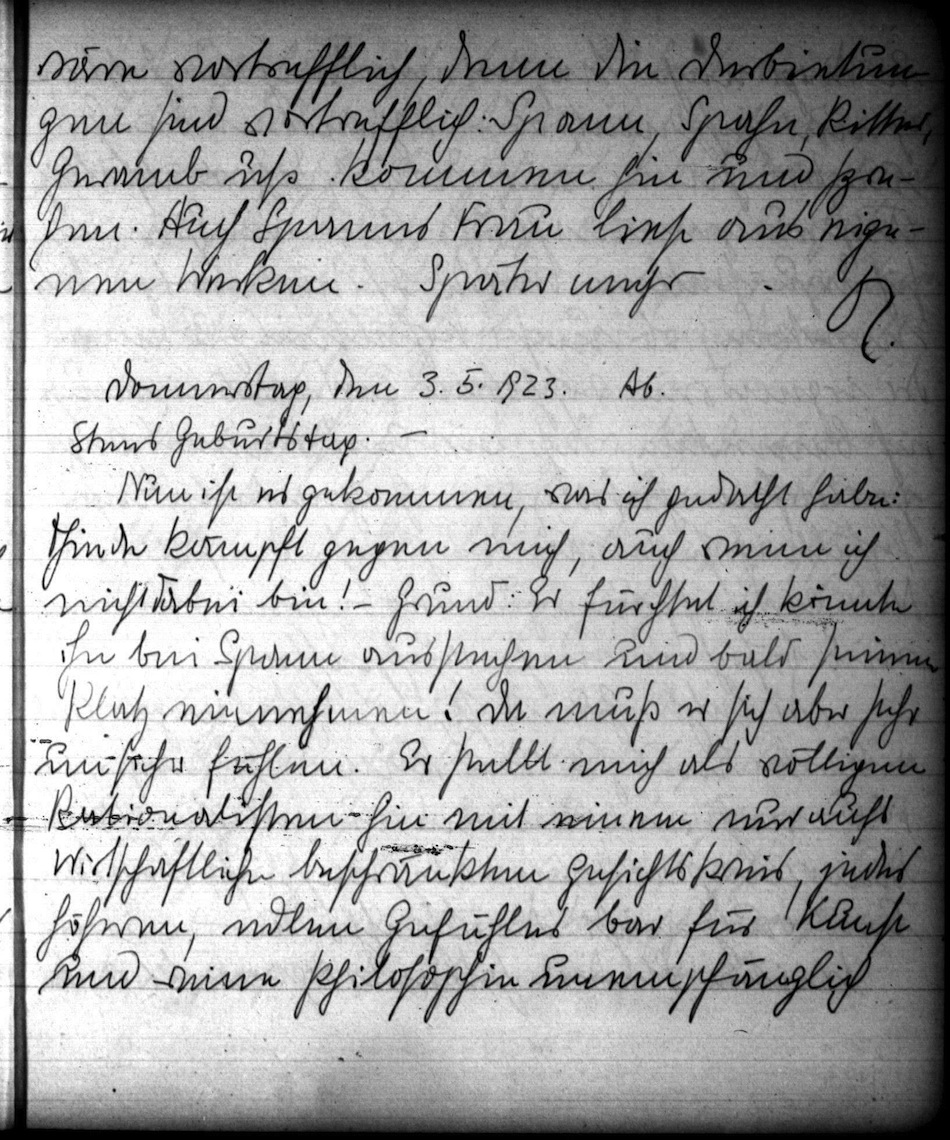 wäre vortrefflich, denn die Darbietun-
gen sind vortrefflich: Spann, Spahn, Ritter,
Geramb usw. kommen hin und
Auch Spanns Frau liest aus eige-
nen Werken. Später mehr.
Donnerstag, den 3. 5. 1923. Ab.
Geburtstag. –
Nun ist es gekommen, was ich gedacht habe:
kämpft gegen mich, auch wenn ich
nicht dabei bin! – Grund: Er fürchtet ich könnte
ihn bei Spann ausstechen und bald seinen
Platz einnehmen! Da muß er sich aber sehr
unsicher fühlen. Er stellt mich als völligen
Rationalisten hin mit einem nur aufs
Wirtschaftliche beschränkten Gesichtskreis, jedes
höheren, edlen Gefühles bar für Kunst
und reine Philosophie unempfänglich